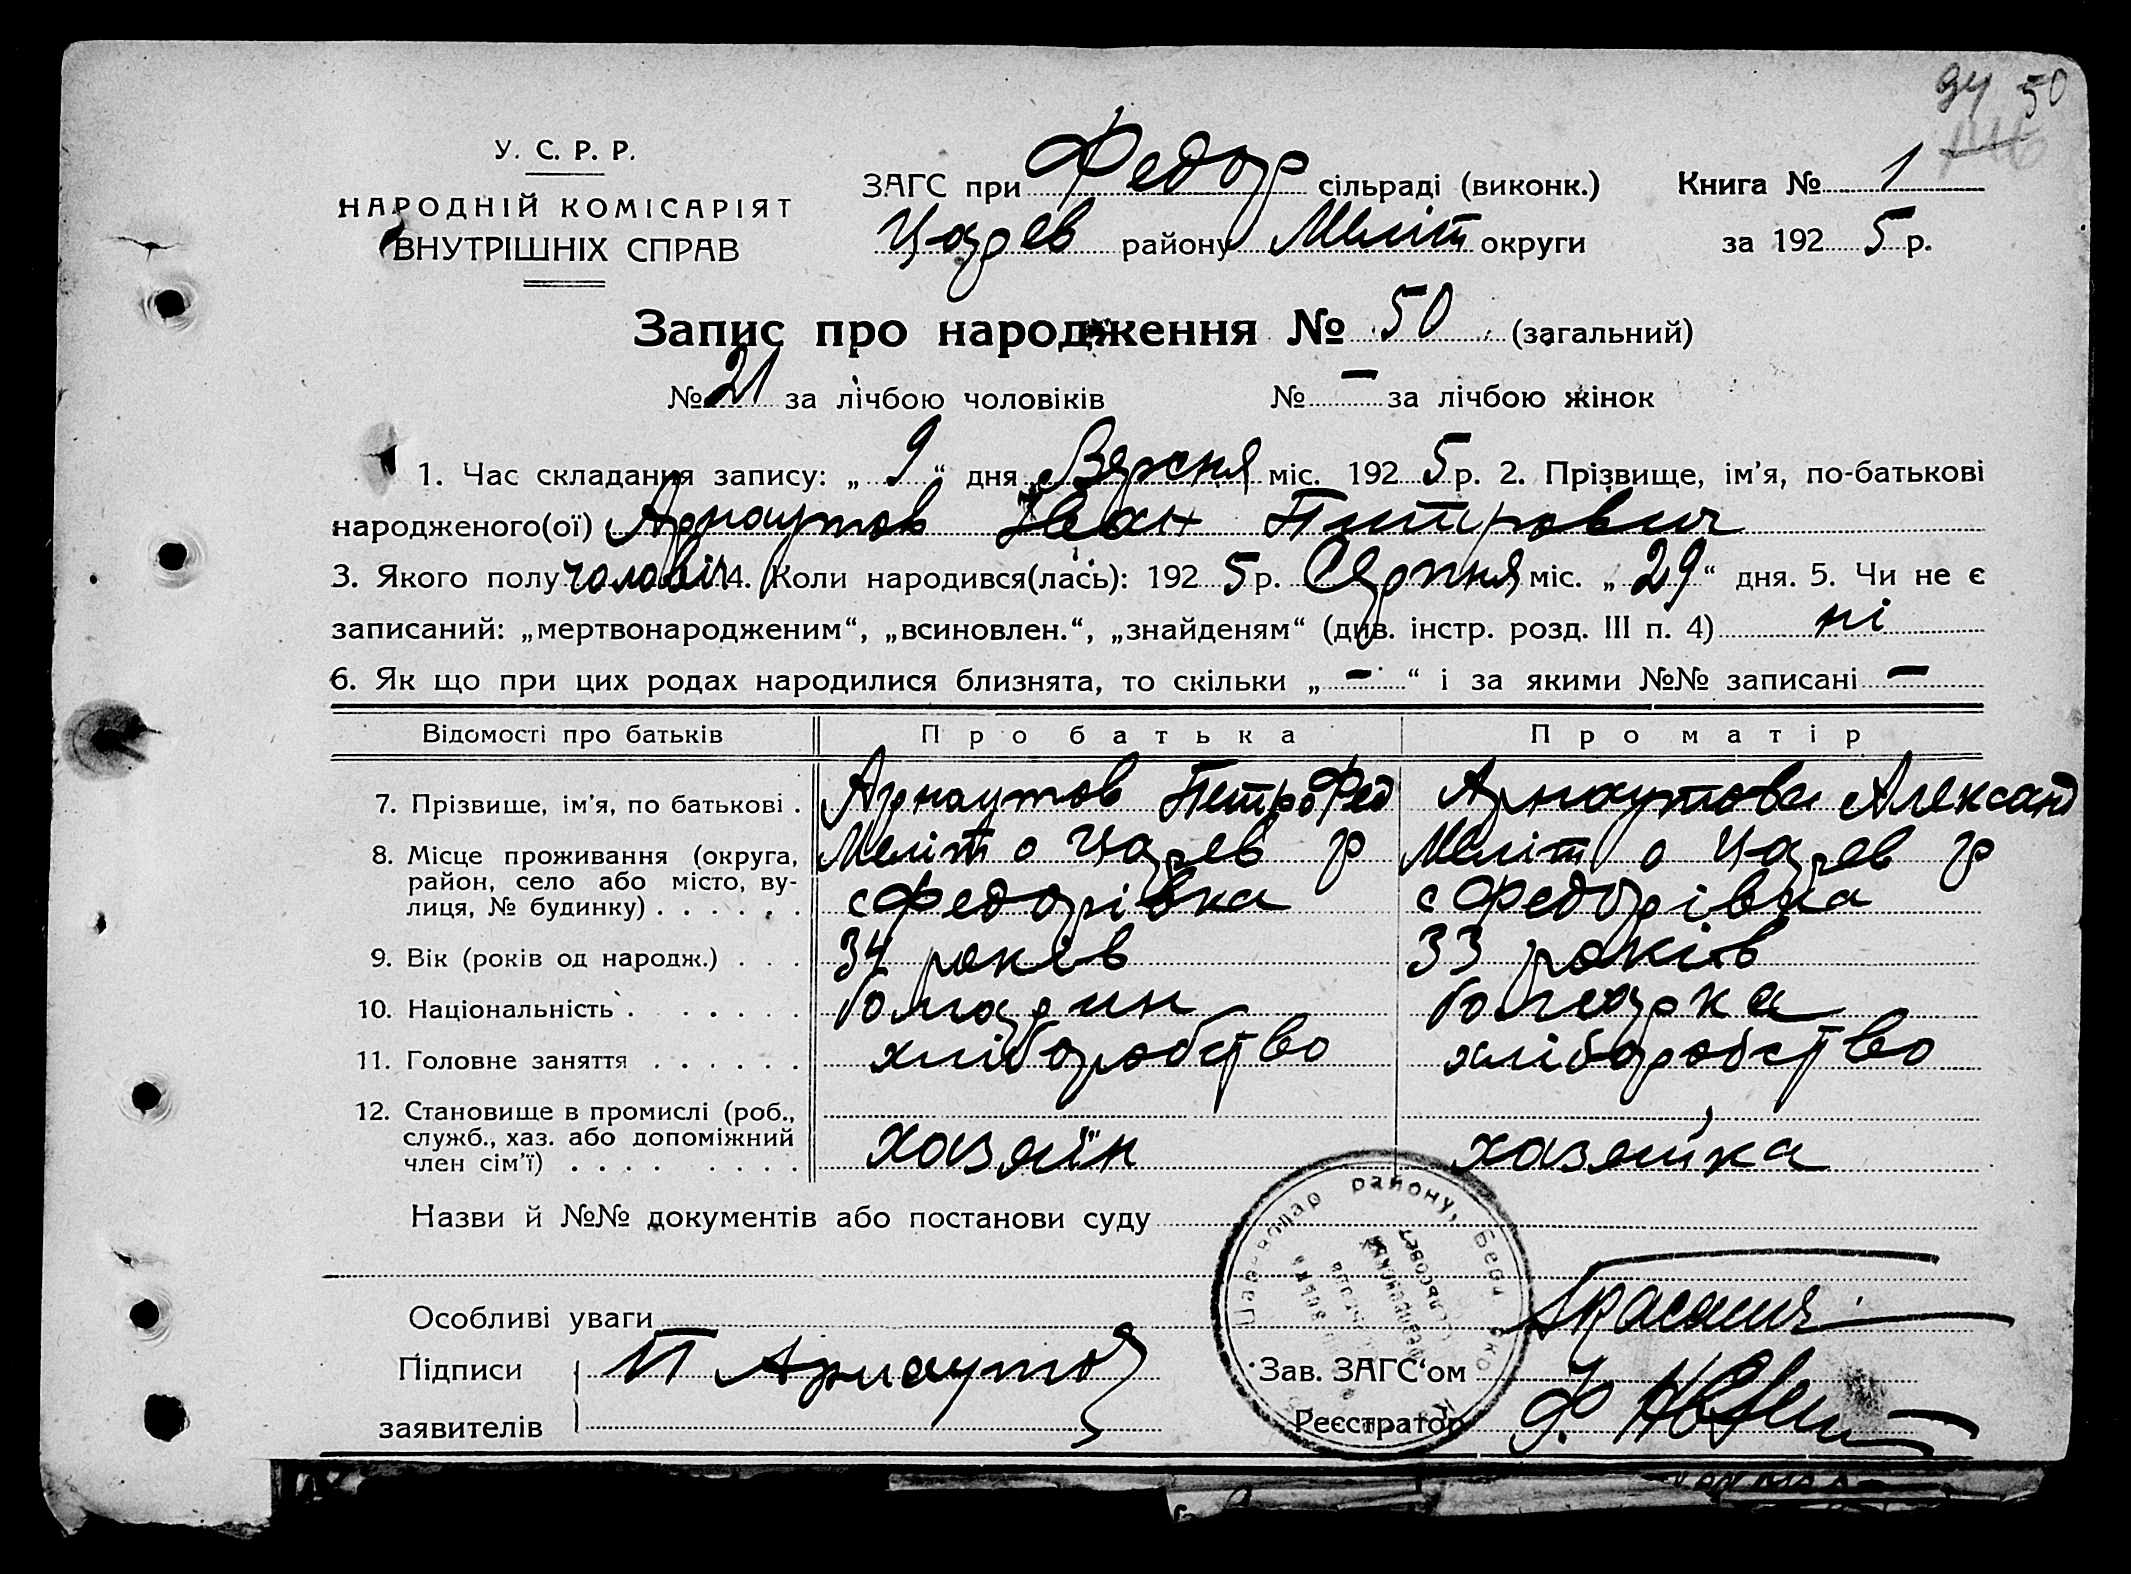 94 50
146
У. С. Р. Р.
НАРОДНІЙ КОМІСАРІЯТ
ВНУТРІШНІХ СПРАВ
ЗАГС при Федор сільраді (виконк.) Книга № 1
Царев району Меліт округи за 1925 р.
Запис про народження № 50 (загальний)
№ 21 за лічбою чоловіків № — за лічбою жінок
1. Час складання запису: „ 9 “ дня Версня міс. 1925 р. 2. Прізвище, ім'я, по-батькові
народженого(ої) Арнаутов Іван Питрович
3. Якого полу чоловіч 4. Коли народився(лась): 1925 р. Серпня міс. „ 29 “ дня. 5. Чи не є
записаний: „мертвонародженим“, „всиновлен.“, „знайденям“ (див. інстр. розд. III п. 4) ні
6. Як що при цих родах народилися близнята, то скільки „ — “ і за якими №№ записані —
Відомості про батьків Про батька Про матір
7. Прізвище, ім'я, по батькові . Арнаутов Петро Фед Арнаутова Александ
8. Місце проживання (округа, Меліт о Царев р Меліт о Царев р
район, село або місто, ву-
лиця, № будинку) . . . . . . с Федорівка с Федорівка
9. Вік (років од народж.) . . . 34 років 33 років
10. Національність . . . . . . . болгарин болгарка
11. Головне заняття . . . . . . хліборобство хліборобство
12. Становище в промислі (роб.,
служб., хаз. або допоміжний хазяїн хазяйка
член сім'ї) . . . . . . . .
Назви й №№ документів або постанови суду
Особливі уваги
Підписи П Арнаутов Зав. ЗАГС‘ом
заявителів Реєстратор
району,